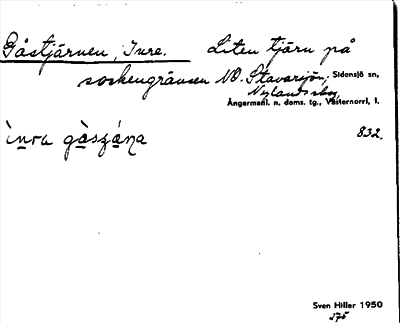 Gåstjärnen, Inre. Liten tjärn på
sockengränsen NO. Stavarsjön, Sidensjö sn,
Nylandsby,
Ångermanl. n. doms. tg., Västernorrl. l.
ìnra gàszána 832.
Sven Hiller 1950
275